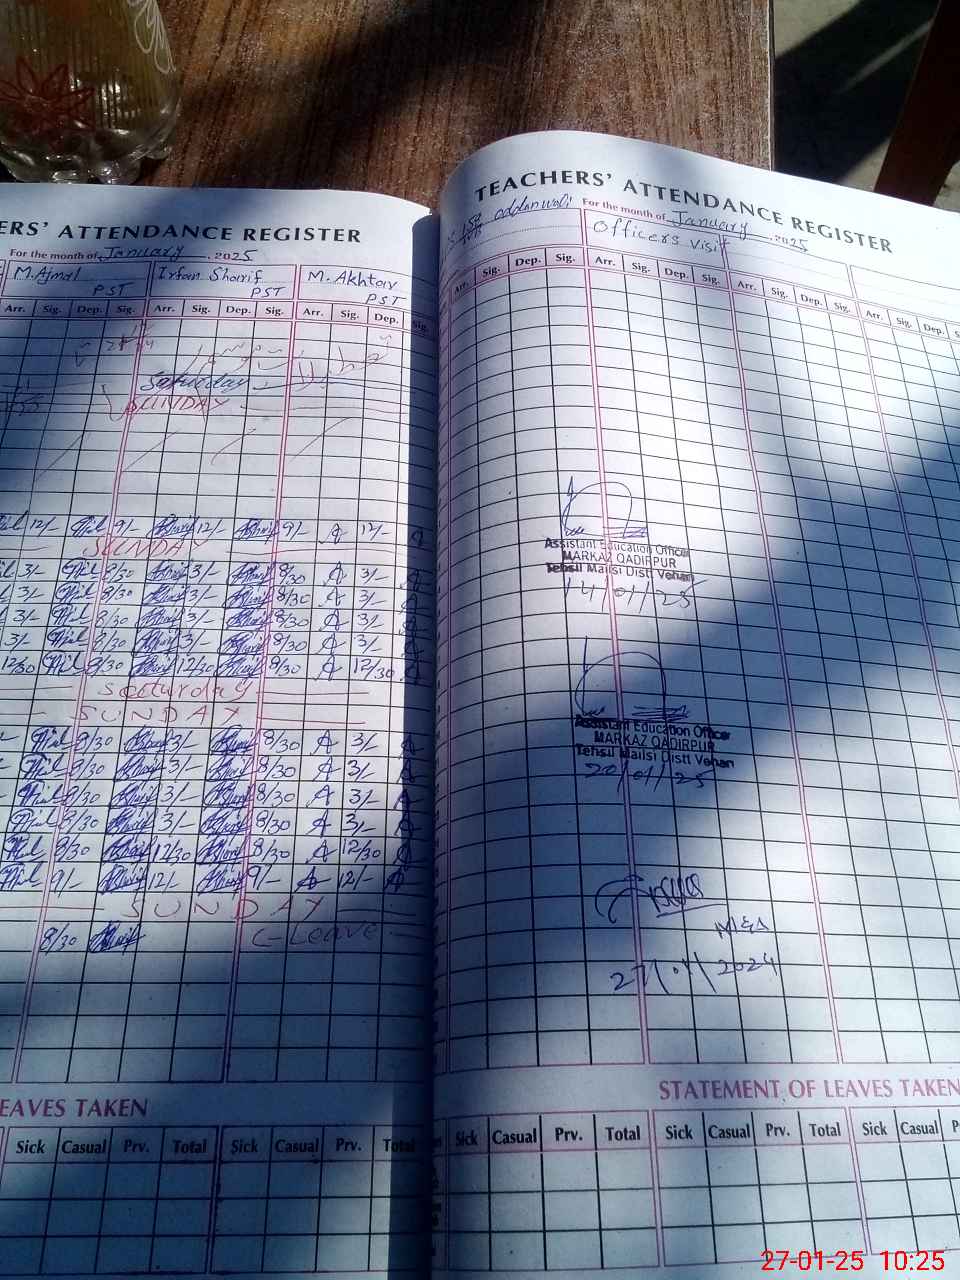 ERS' ATTENDANCE REGISTER
For the month of January 2025
M.Ajmal PST
Irfan Sharif PST
M. Akhtar PST
Arr. Sig. Dep. Sig. Arr. Sig. Dep. Sig. Arr. Sig. Dep. Sig.
Saturday
SUNDAY
12/- 9/- 12/- 9/- A 12/- A
SUNDAY
3/- 8/30 3/- 8/30 A 3/- A
3/- 8/30 3/- 8/30 A 3/- A
3/- 8/30 3/- 8/30 A 3/- A
3/- 8/30 3/- 8/30 A 3/- A
12/30 8/30 12/30 8/30 A 12/30 A
Saeturday
SUNDAY
8/30 3/- 8/30 A 3/- A
8/30 3/- 8/30 A 3/- A
8/30 3/- 8/30 A 3/- A
8/30 3/- 8/30 A 3/- A
8/30 12/30 8/30 A 12/30 A
9/- 12/- 9/- A 12/- A
SUNDAY
8/30 C-Leave
EAVES TAKEN
Sick Casual Prv. Total Sick Casual Prv. Total
TEACHERS' ATTENDANCE REGISTER
154 oddanwali For the month of January 2025
Officers visit
Arr. Sig. Dep. Sig. Arr. Sig. Dep. Sig. Arr. Sig. Dep. Sig. Arr. Sig. Dep. S
Assistant Education Officer
MARKAZ QADIRPUR
Tehsil Mailsi Distt Vehari
14/01/25
Assistant Education Officer
MARKAZ QADIRPUR
Tehsil Mailsi Distt Vehari
20/01/25
MEA
27/01/2024
STATEMENT OF LEAVES TAKEN
Sick Casual Prv. Total Sick Casual Prv. Total Sick Casual P
27-01-25 10:25